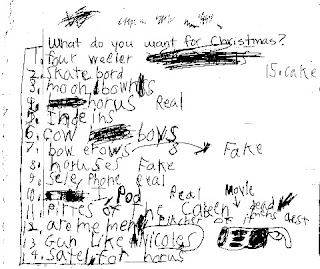 What do you want for Christmas?
1. four weeler
2. skate bord
15. cake
3. moon bowns
4. horus Real
5. Indeins
6. cow bows
7. bow erows Fake
8. horuses Fake
9. sele phone real
10. Pod Real Movie
11. Pirtes of the Cabeen dead
2. are me men
13 Gun Like Nicolas
14. satel for horus